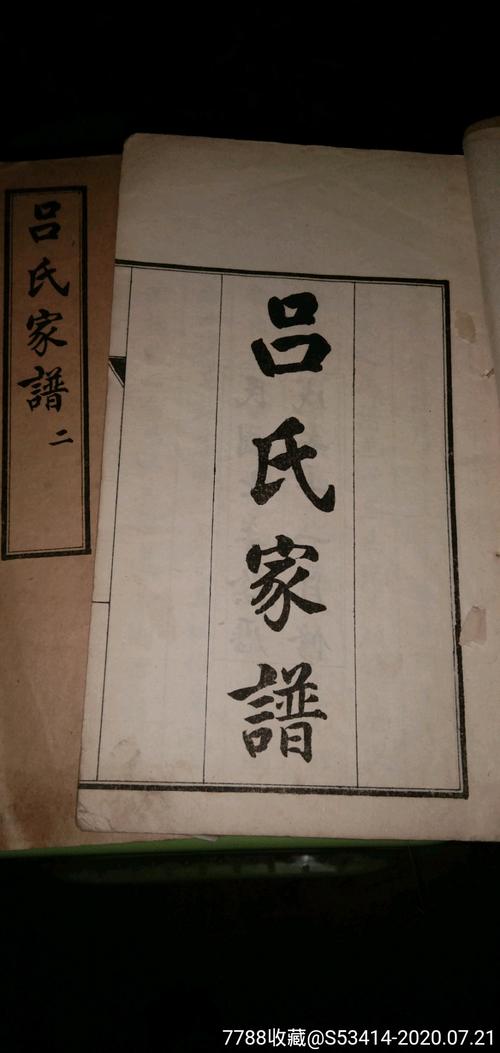 呂氏家譜
二
呂氏家譜
7788收藏@S53414-2020.07.21